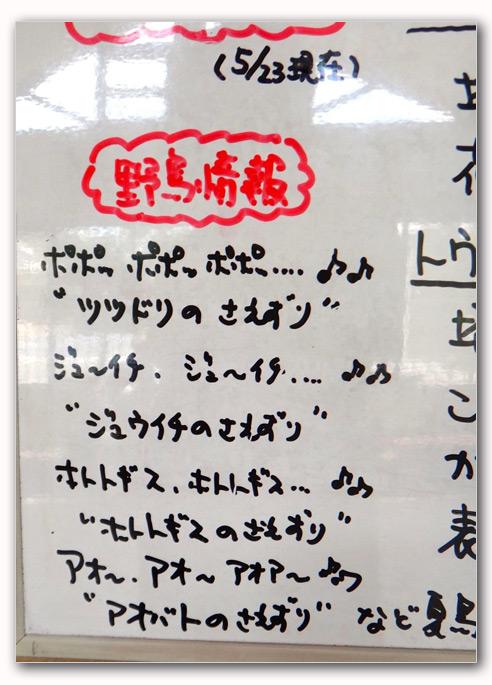 (5/23現在)
野鳥情報
ポポッ ポポッ ポポッ.... ♪♪
"ツツドリのさえずり"
ジュ〜イチ、ジュ〜イチ.... ♪♪
"ジュウイチのさえずり"
ホトトギス、ホトトギス... ♪♪
"ホトトギスのさえずり"
アオ〜、アオ〜 アオアー ♪♪
"アオバトのさえずり" など夏鳥
花
トウ
こ
が
表